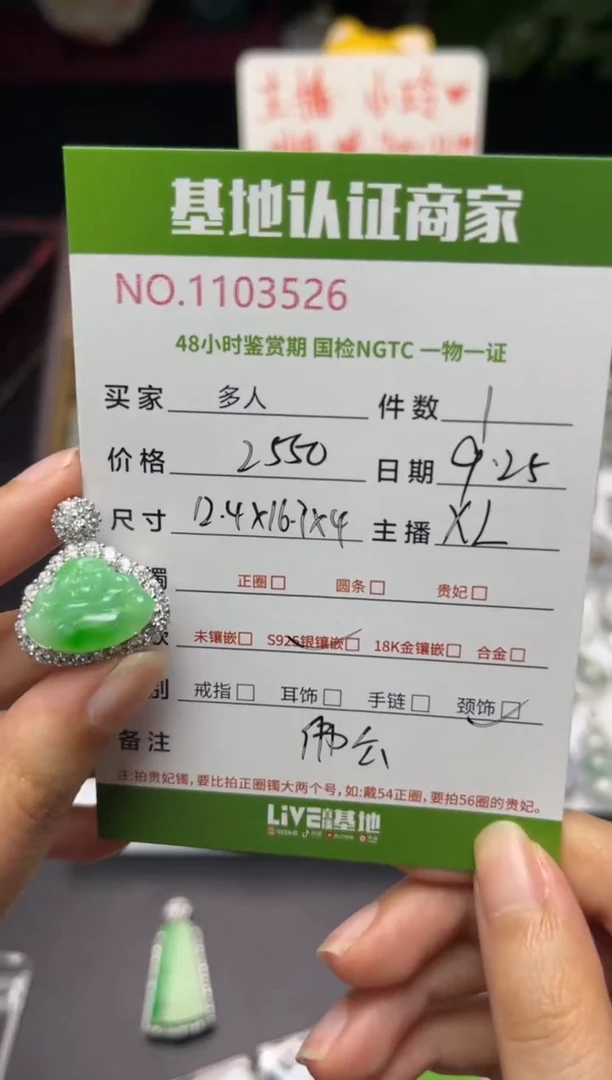 基地认证商家
NO.1103526
48小时鉴赏期 国检NGTC 一物一证
买家 多人 件数 1
价格 2550 日期 9.25
尺寸 12.4X16.7X4 主播 XL
正圈□ 圆条□ 贵妃□
未镶嵌□ S925银镶嵌□ 18K金镶嵌□ 合金□
别 戒指□ 耳饰□ 手链□ 颈饰□
备注 佛公
注:拍贵妃镯,要比拍正圈镯大两个号,如:戴54正圈,要拍56圈的贵妃。
LiVE 基地